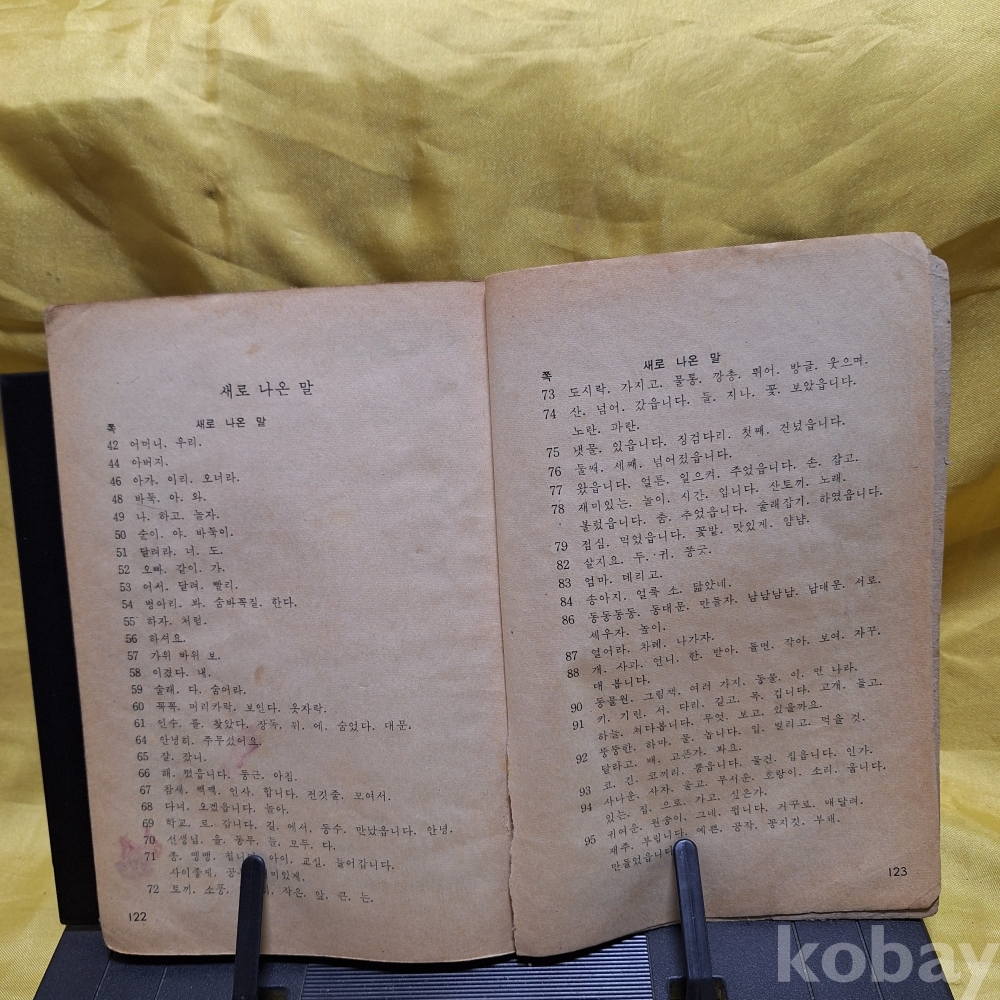 새로 나온 말
쪽 새로 나온 말
42 어머니. 우리.
44 아버지.
46 아가. 이리. 오너라.
48 바둑. 아. 와.
49 나. 하고. 놀자.
50 순이. 야. 바둑이.
51 달려라. 너. 도.
52 오빠. 같이. 가.
53 어서. 달려. 빨리.
54 병아리. 봐. 숨바꼭질. 한다.
55 하자. 처럼.
56 하셔요.
57 가위 바위 보.
58 이겼다. 내.
59 술래. 다. 숨어라.
60 꼭꼭. 머리카락. 보인다. 옷자락.
61 인수. 를. 찾았다. 장독. 뒤. 에. 숨었다. 대문.
64 안녕히. 주무셨어요.
65 잘. 잤니.
66 해. 떴읍니다. 둥근. 아침.
67 참새. 짹짹. 인사. 합니다. 전깃줄. 모여서.
68 다녀. 오겠읍니다. 놀아.
69 학교. 로. 갑니다. 길. 에서. 동수. 만났읍니다. 안녕.
70 선생님. 을. 동무. 들. 모두. 다.
71 종. 땡땡. 아이. 교실. 들어갑니다.
사이좋게. 재미있게.
72 토끼. 소풍. 작은. 앞. 큰. 는.
122
새로 나온 말
쪽
73 도시락. 가지고. 물통. 깡충. 뛰어. 방글. 웃으며.
74 산. 넘어. 갔읍니다. 들. 지나. 꽃. 보았읍니다.
노란. 파란.
75 냇물. 있읍니다. 징검다리. 첫째. 건넜읍니다.
76 둘째. 세째. 넘어졌읍니다.
77 왔읍니다. 얼른. 일으켜. 주었읍니다. 손. 잡고.
78 재미있는. 놀이. 시간. 입니다. 산토끼. 노래.
불렀읍니다. 춤. 추었읍니다. 술래잡기. 하였읍니다.
79 점심. 먹었읍니다. 꽃밭. 맛있게. 얌냠.
82 살지요. 두. 귀. 쫑긋.
83 엄마. 데리고.
84 송아지. 얼룩 소. 닮았네.
86 동동동동. 동대문. 만들자. 남남남남. 남대문. 서로.
세우자. 높이.
87 열어라. 차례. 나가자.
88 개. 사과. 언니. 한. 받아. 들면. 작아. 보여. 자꾸.
대 봅니다.
90 동물원. 그림책. 여러 가지. 동물. 이. 먼 나라.
91 키. 기린. 서. 다리. 길고. 목. 깁니다. 고개. 들고.
하늘. 쳐다봅니다. 무엇. 보고. 있을까요.
92 뚱뚱한. 하마. 물. 놉니다. 입. 벌리고. 먹을 것.
달라고. 배. 고픈가. 봐요.
93 코. 긴. 코끼리. 뿜읍니다. 물건. 집읍니다. 인가.
94 사나운. 사자. 울고. 무서운. 호랑이. 소리. 웁니다.
있는. 집. 으로. 가고. 싶은가.
95 귀여운. 원숭이. 그네. 뜁니다. 거꾸로. 매달려.
재주. 부립니다. 예쁜. 공작. 꽁지깃. 부채.
만들었읍니다.
123
kobay